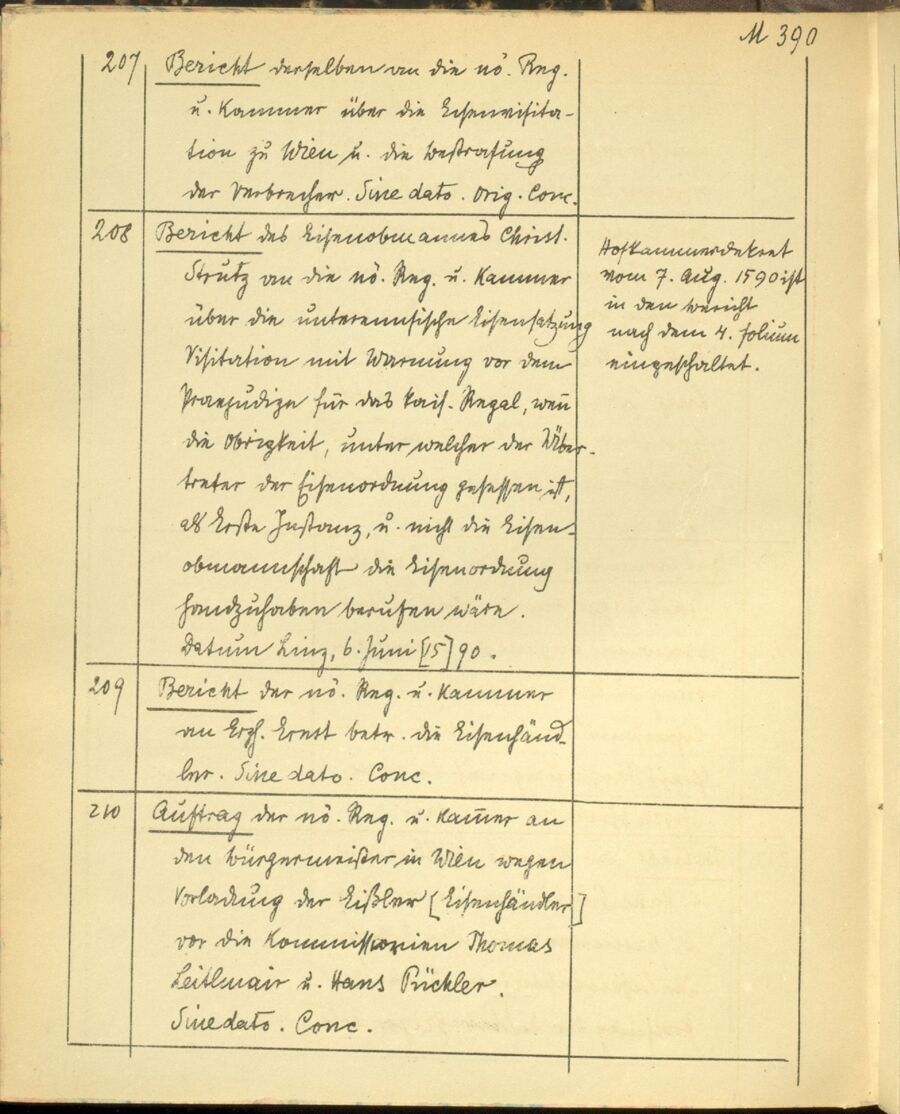 M 390
207 Bericht derselben an die nö. Reg.
u. Kammer über die Eisenvisita-
tion zu Wien u. die Bestrafung
der Verbrecher. Sine dato. Orig. Conc.
208 Bericht des Eisenobmannes Christ.
Strutz an die nö. Reg. u. Kammer
über die unterennsische Eisensatzung
Visitation mit Warnung vor dem
Praejudize für das kais. Regal, wen̄
die Obrigkeit, unter welcher der Über-
treter der Eisenordnung gesessen ist,
als erste Instanz, u. nicht die Eisen-
obmannschaft die Eisenordnung
handzuhaben berufen wäre.
Datum Linz, 6. Juni [15]90.
Hofkammerdekret
vom 7. Aug. 1590 ist
in den Bericht
nach dem 4. folium
eingeschaltet.
209 Bericht der nö. Reg. u. Kammer
an Erzh. Ernst betr. die Eisenhänd-
ler. Sine dato. Conc.
210 Auftrag der nö. Reg. u. Kam̄er an
den Bürgermeister in Wien wegen
Vorladung der Eißler [Eisenhändler]
vor die Kommissionien Thomas
Leitlmair u. Hans Püchler.
Sine dato. Conc.